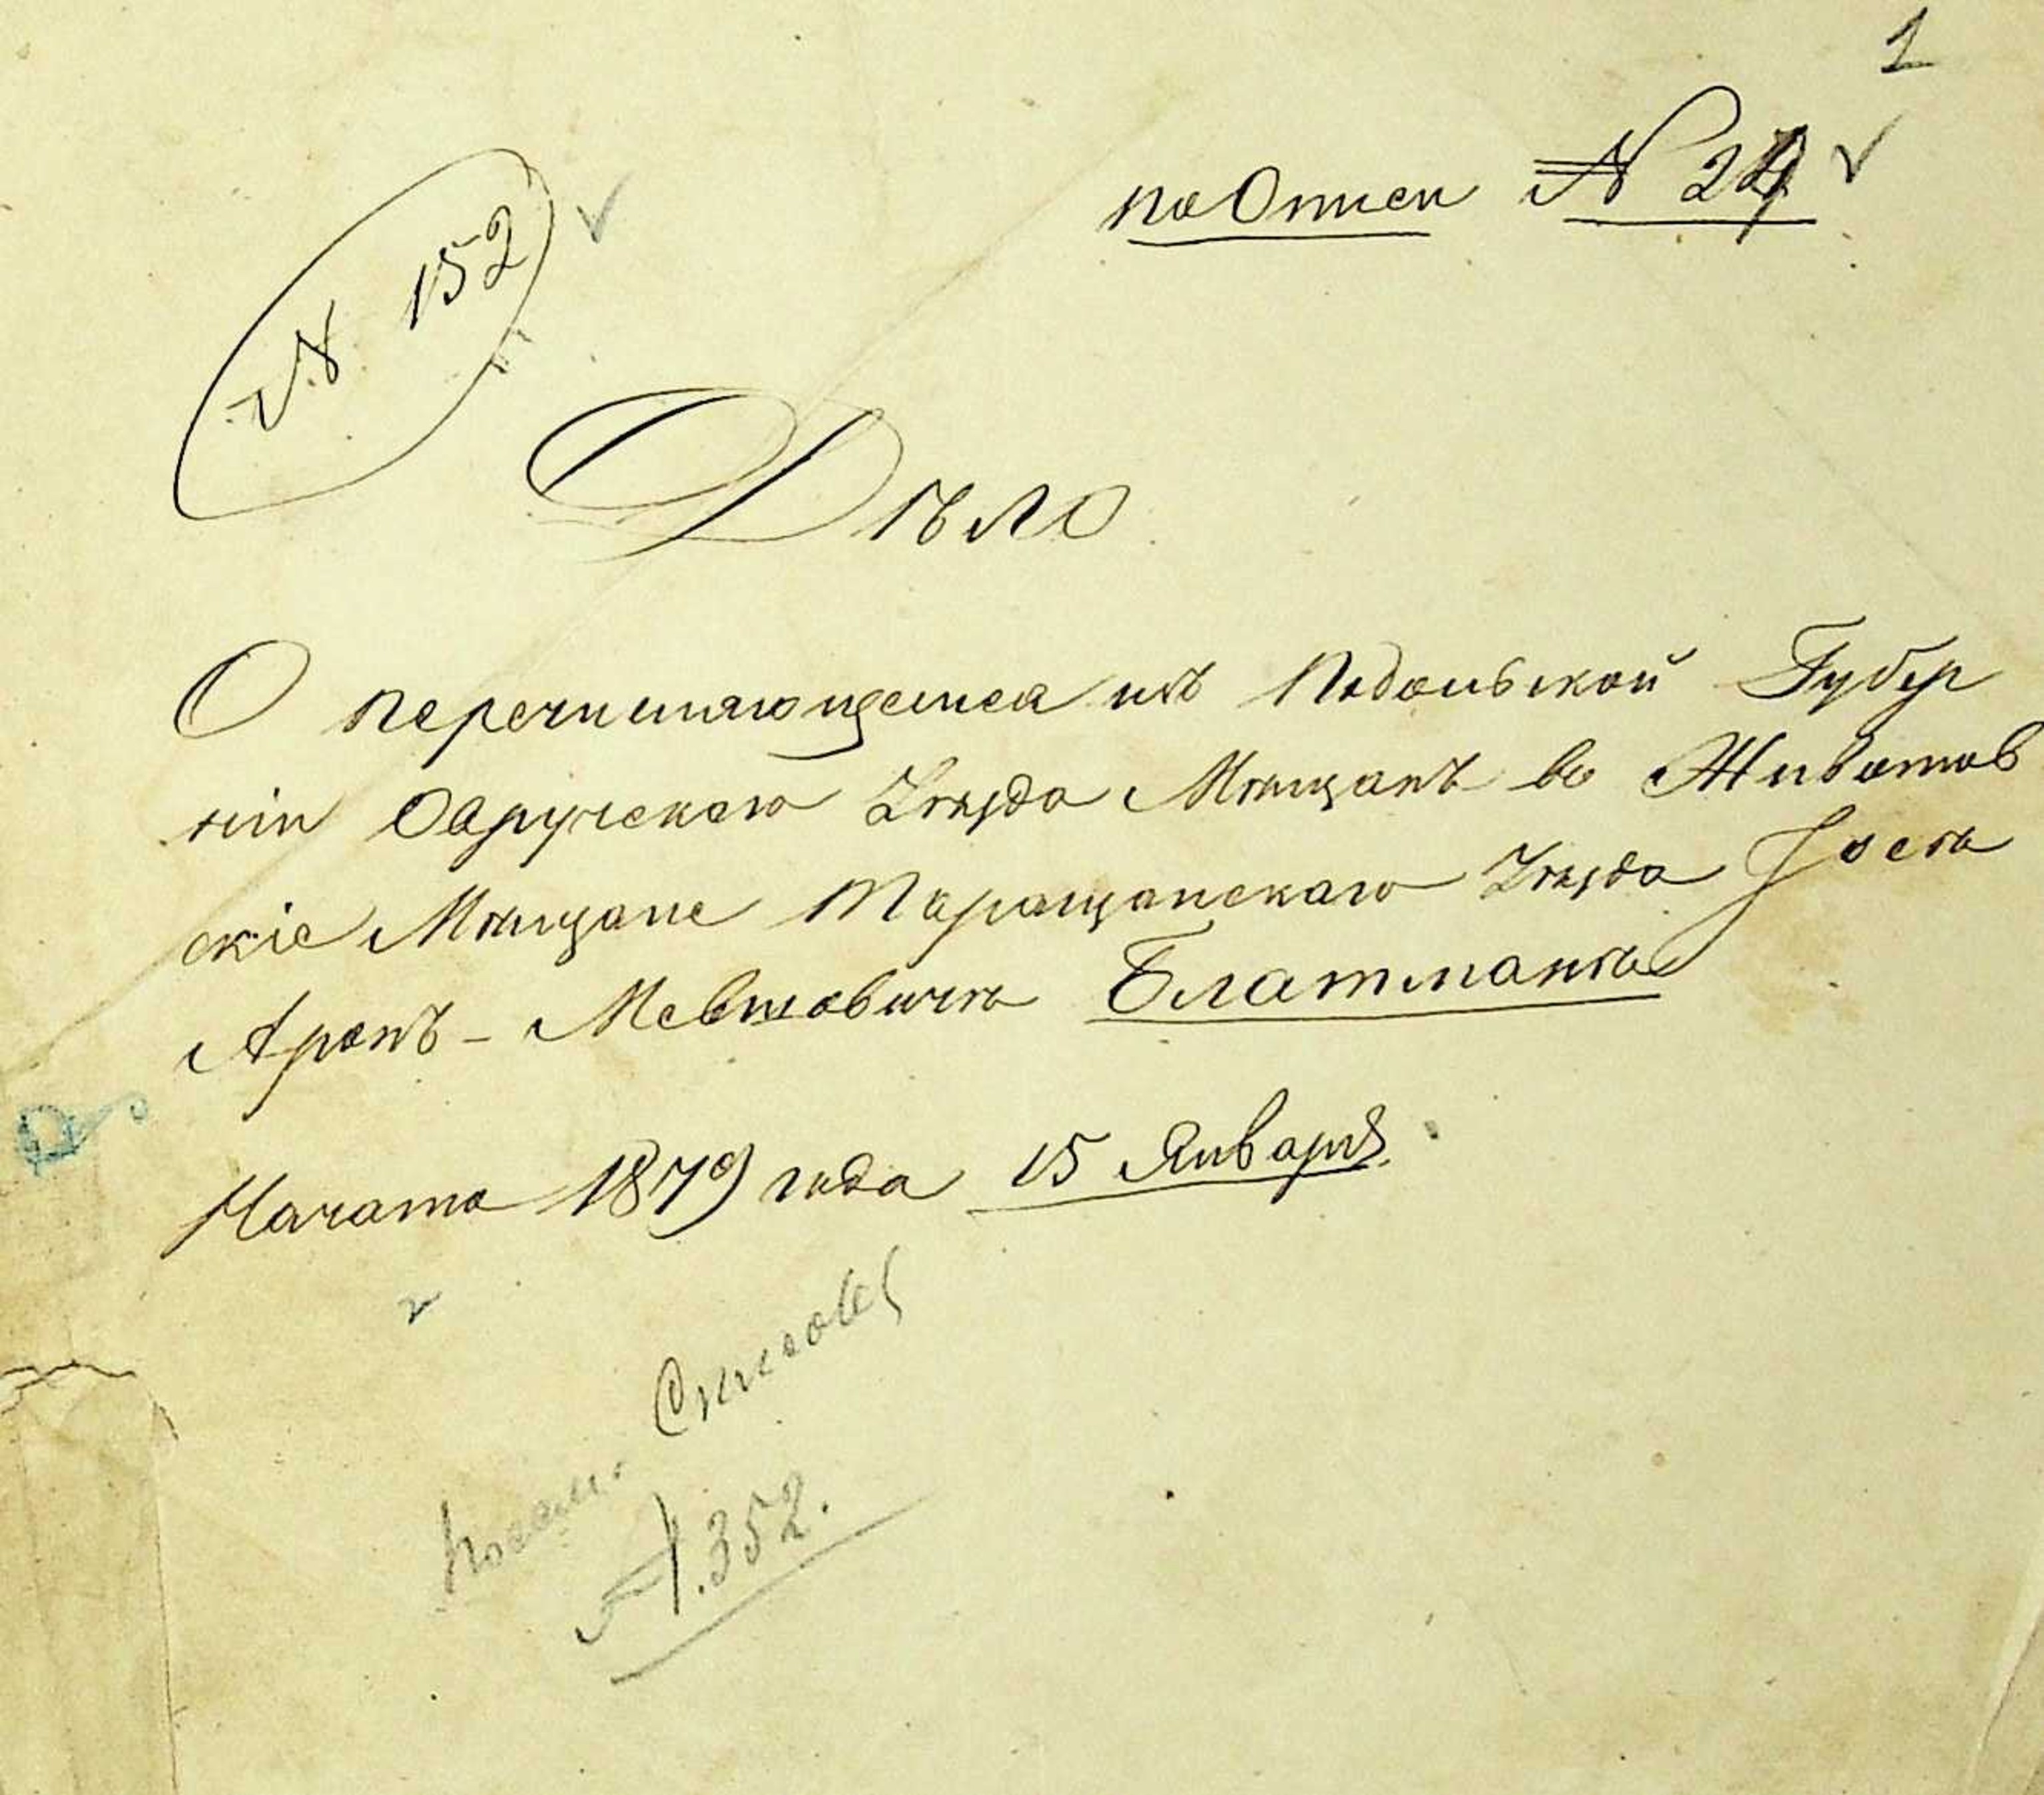 1
по Описи № 29
№ 152
Дѣло
О перечисляющемся изъ Подольской Губер
ніи Овручскаго Уѣзда Мѣщанъ во Животов
скіе Мѣщане Таращанскаго Уѣзда
Аронъ - Мевшовичѣ Блатманѣ
Начато 1879 года 15 Января.
352.